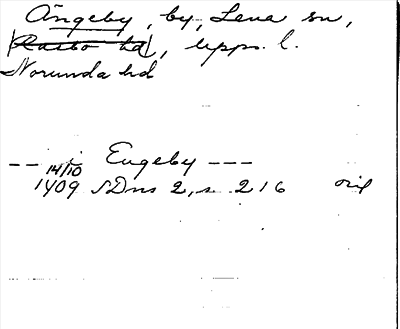 Ängeby, by, Lena sn,
Rasbo hd, Upps. l.
Norunda hd
-- i Engeby ---
14/10
1409 SDns 2, s. 216 orig